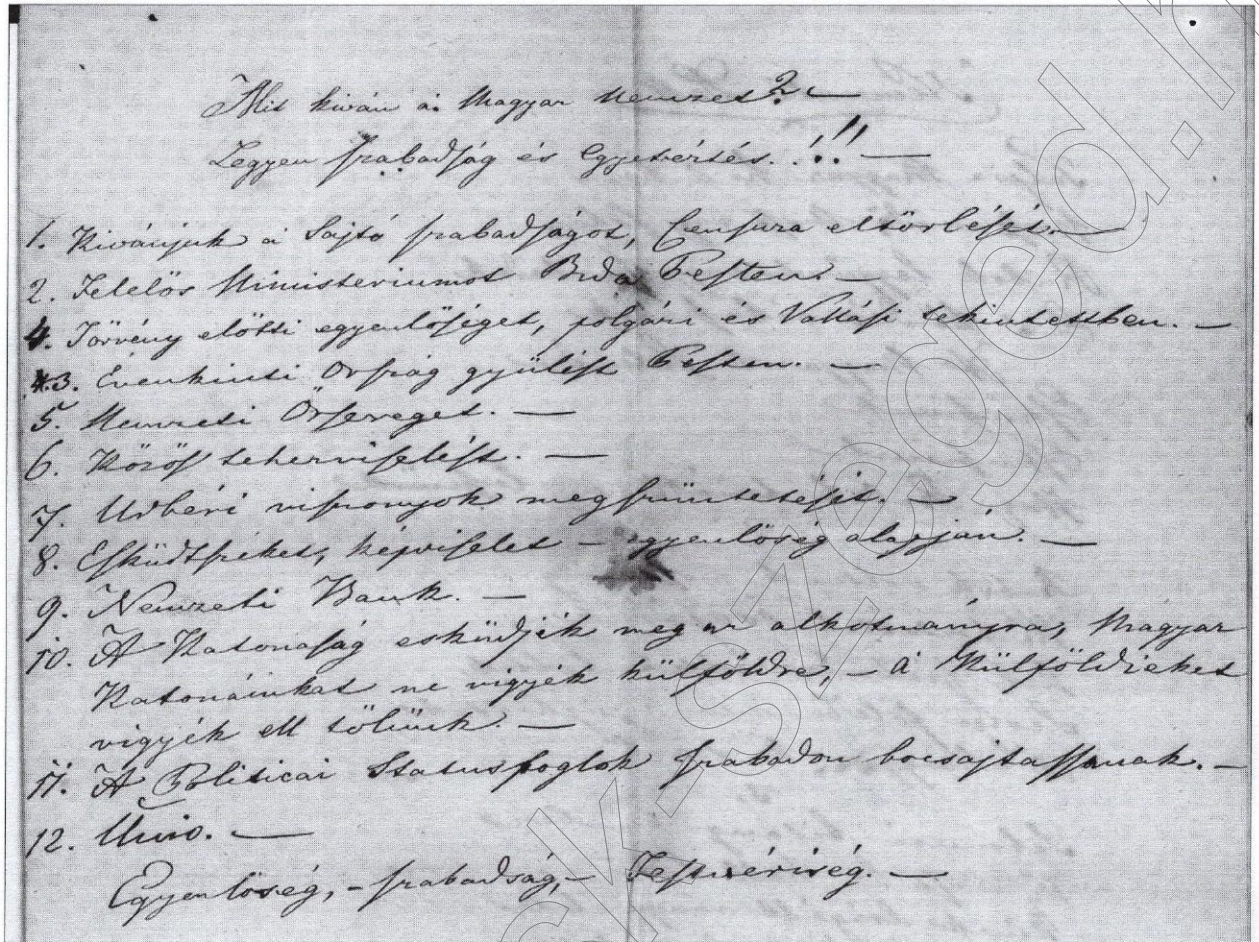 Mit kíván a' Magyar Nemzet? —
Legyen szabadság és Egyetértés. !!! —
1. Kivánjuk a' Sajtó szabadságot, Censura eltörlését. —
2. Felelős Ministeriumot Buda Pesten. —
4. Törvény előtti egyenlőséget, polgári és Vallási tekintettben. —
3. Évenkinti Ország gyülést Pesten. —
5. Nemzeti Őrsereget. —
6. Közös teherviselést. —
7. Urbéri viszonyok megszüntetését. —
8. Esküdtszéket, képviselet – egyenlőség alapján. —
9. Nemzeti Bank. —
10. A' Katonaság esküdjék meg az alkotmányra, Magyar
Katonáinkat ne vigyék külföldre, – a' Külföldieket
vigyék ell tőlünk. —
11. A' Politicai Statusfoglok szabadon bocsajtassanak. —
12. Unio. —
Egyenlőség, – szabadság, – Testvériség. —